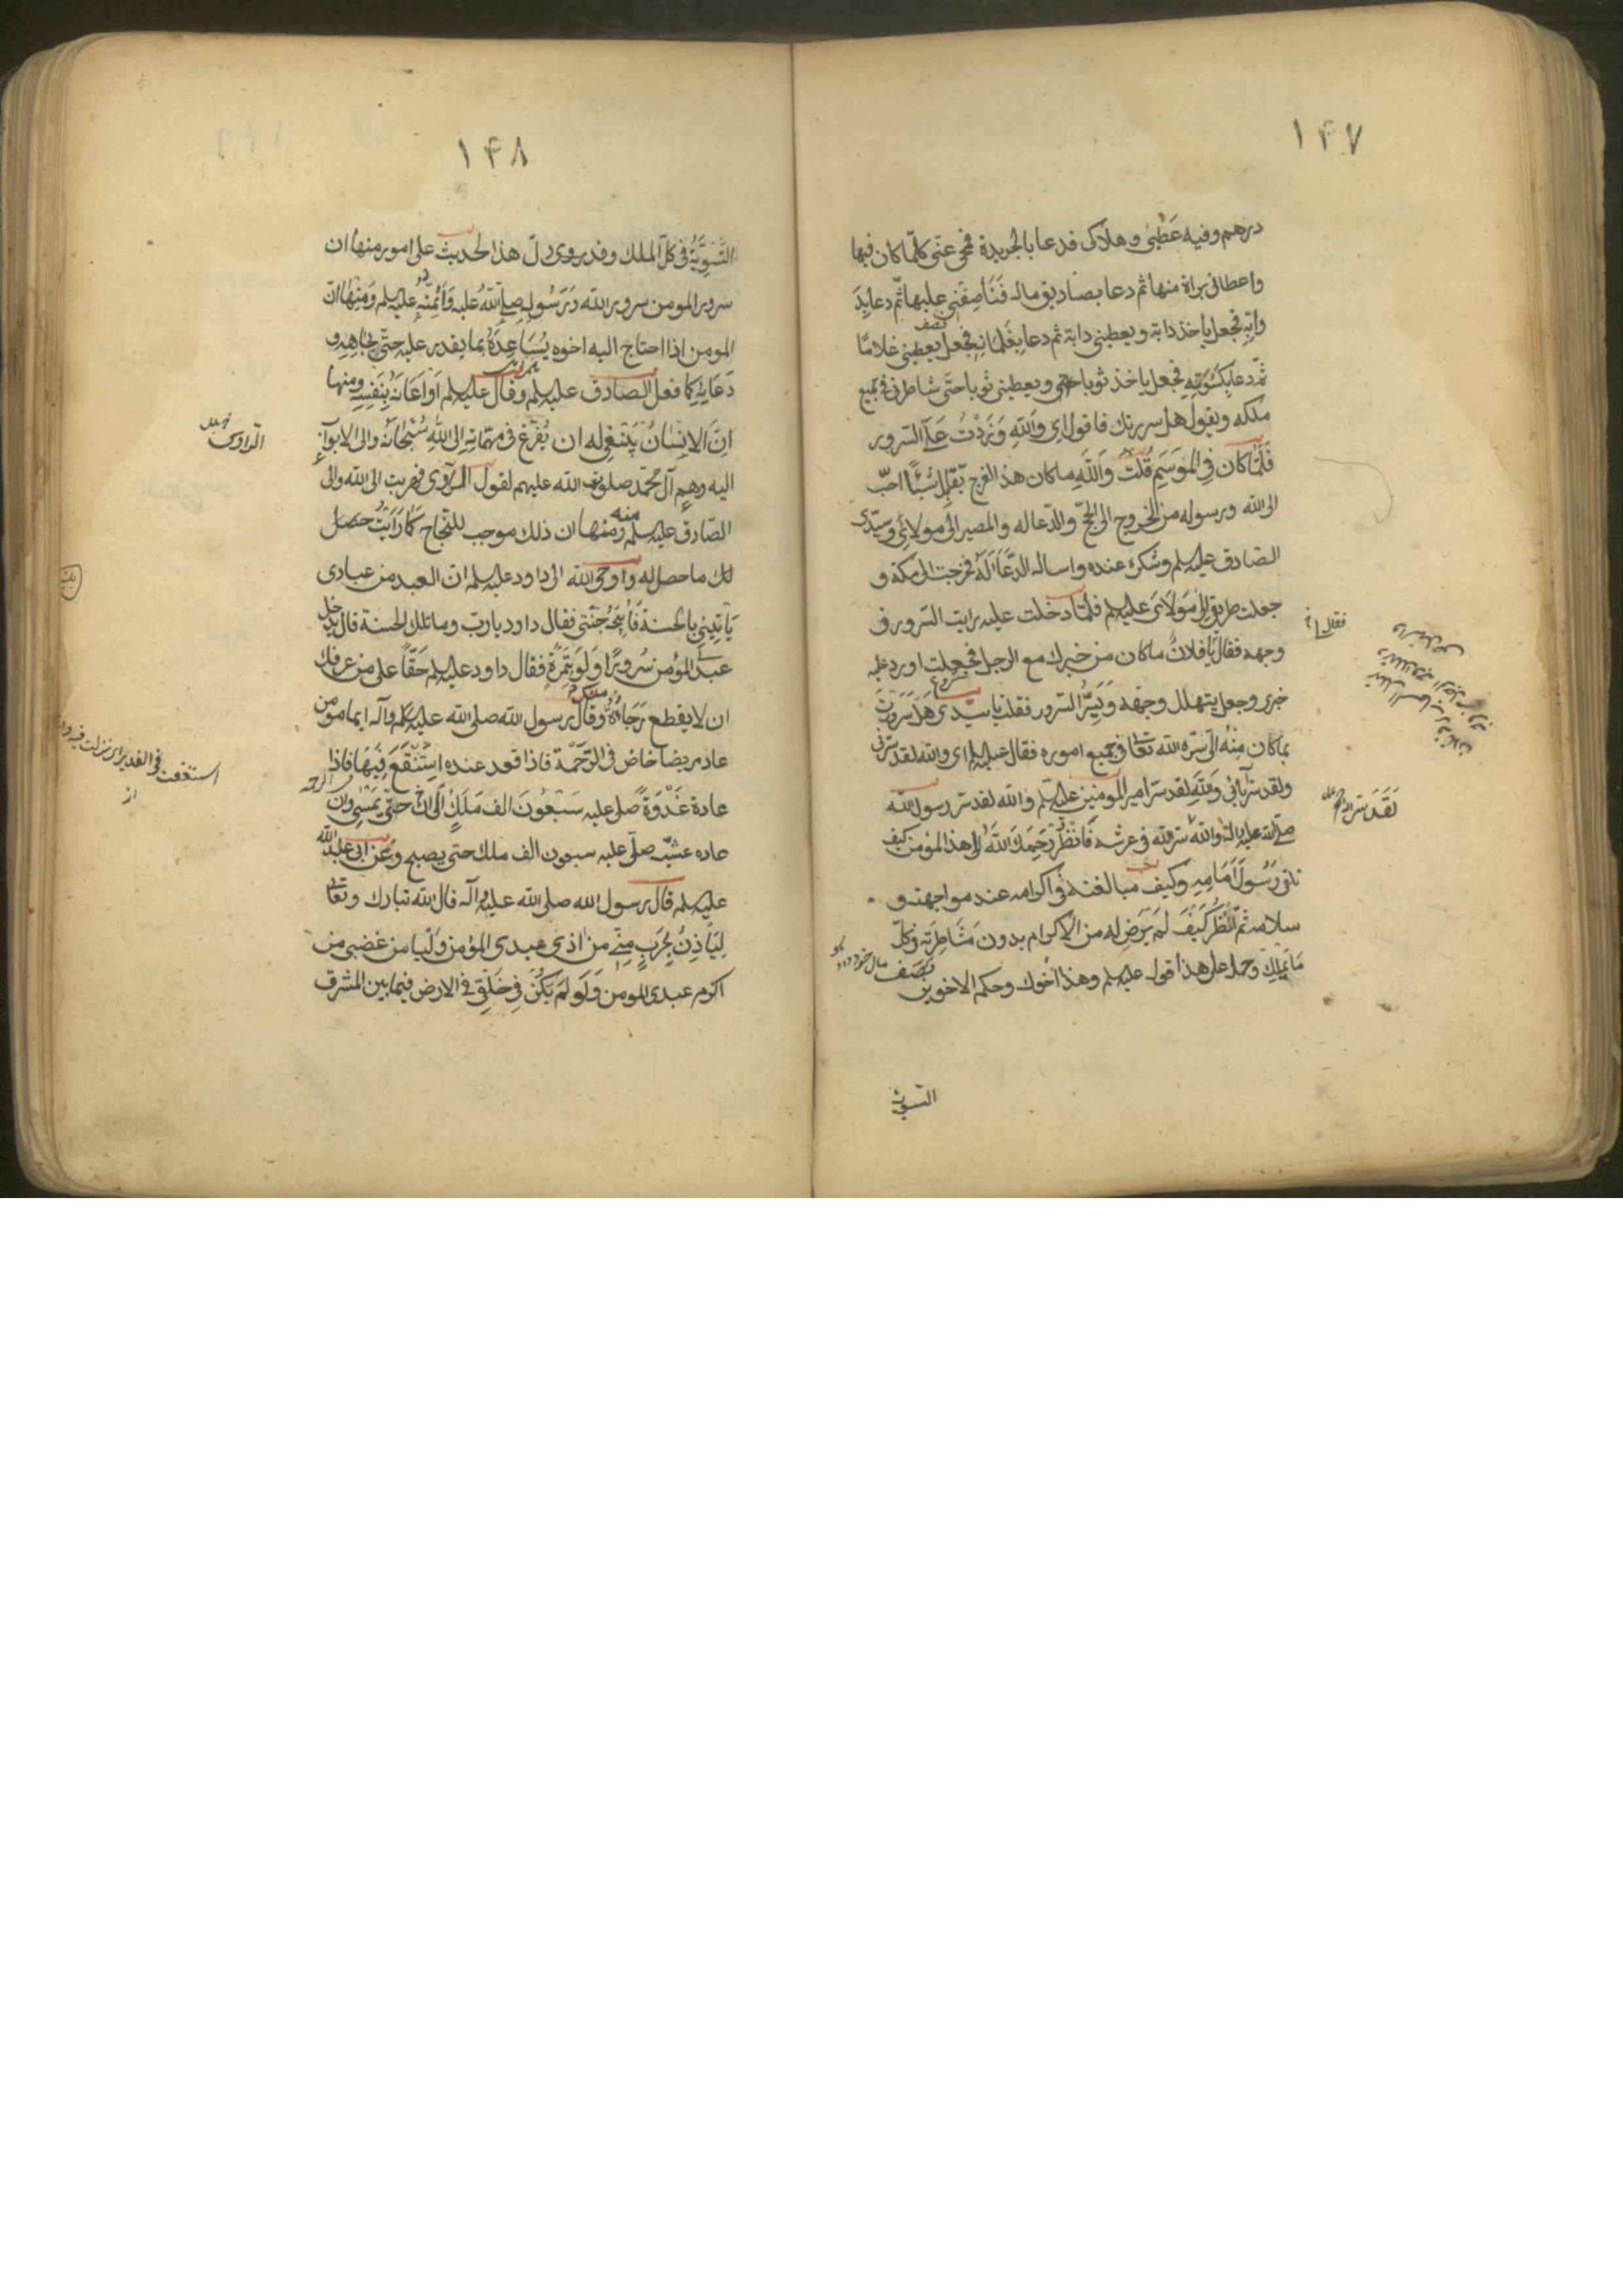 ١۴٧
درهم وفيه عطبى وهلاكى فدعا بالجريدة فمحى عنّى كلّما كان فيها
واعطانى براة منها ثم دعا بصناديق ماله فناصفنى عليها ثمّ دعا بِدَ
وابّه فجعل ياخذ دابة ويعطينى دابة ثم دعا بغلمانه فجعل يعطينى غلامًا
ثمّ دعا بكسوته فجعل ياخذ ثوبا ويعطينى ثوبا حتّى شاطرنى فى جميع
ملكه ويقول هل سررتك فاقول اى وَاللهِ وَزِدْتَ عَلَىَّ السّرور
فَلَمّا كان فِى المَوْسِم قُلتُ وَاللهِ ما كان هذا الفرج يُقابَل بشئٍ احبّ
الى الله ورسوله من الخروج الى الحجّ والدّعا له والمصير الى مولائى وسيّدى
الصّادق عليه السلم وشكره عنده واساله الدّعَا لَهُ فخرجت الى مكة و
جعلت طريقى الى مَولاىَ عليه السلم فلمّا دخلت عليه رايت السّرور فى
فقال لى
وجهه فقال يا فلانُ ما كان من خبرك مع الرجل فجعلت اورد عليه
خبرى وجعل يتهلل وجهه ويَسِرُّ السّرور فقلت يا سيّدى هل سُرِرْتَ
بما كان مِنْهُ الىّ سرّه الله تعالى فى جميع اموره فقال عليه السلم اى والله لقد سرّنى
ولقد سرّ آبائى وَاللهِ لقد سرّ امير المومنين عليه السلم والله لقد سرّ رسول الله
صلى الله عليه وآله والله لقد سرّ الله فى عرشه فَانظُرْ رَحِمَكَ اللهُ الى هذا المؤمن كيف
تلقى رَسُولَ اِمَامِهِ وكيف مبالغته فى اكرامه عند مواجهته و
سلامه ثمّ انْظُر كَيْفَ لَمْ يَرْضِ له من الاكرام بدون مَشَاطِرَته فى كلّ
مَا يَملِك وحمله على هذا قوله عليه السلم وهذا اخوك وحكم الاخوين
التسوية
١۴٨
التَّسْوِيَّةُ فى كلّ الملك وقد يروى دلّ هذا الحديث على امور منها ان
سرور المومن سرور الله وَرَسُولِهِ صلى الله عليه وَائمّته عليهم السلم وَمِنْهَا انّ
المومن اذا احتاج اليه اخوه يُسَاعِدُهُ بما يقدر عليه حتّى بجاهِهِ و
دُعَائِهِ كما فعل الصّادق عليه السلم وقال عليه السلم اَوْ اَعَانَهُ بِنَفْسِهِ ومنها
انّ الانسانُ يَنْبَغِى له ان يَفْزَع فى مهمّاته الى اللهِ سُبْحانَهُ والى الابوابِ
اليه وهم آل محمّد صلوات الله عليهم لقول الرّاوى فهربت الى الله والى
الصّادق عليه السلم ومنها ان ذلك موجب للنجاح كَما رَايْتُ حصل
لك ما حصل له واوحى الله الى داود عليه السلم انّ العبد من عبادى
يَاْتِينى بالحسنة فَاُبِيحُهُ جَنّتى فقال داود يا ربّ وما تلك الحسنة قال يدخل
على عبدى المؤمن سُرورًا وَلَو بِتَمْرَةٍ فقال داود عليه السلم حَقّاً على من عرفك
ان لا يقطع رَجَاءَهُ مِنكَ وقال رسول الله صلى الله عليه وآله ايما مومن
عاد مريضا خاض فى الرّحْمَة فاذا قعد عنده استَنْقَعَ فِيهَا فاذا
عادهُ غُدْوَةً صلّى عليه سَبْعُونَ الف مَلَكٍ الى انْ حتّى يمسى وان
عاده عشيّة صلّى عليه سبعون الف ملك حتى يصبح وعَنْ ابى عبد الله
عليه السلم قال رسول الله صلى الله عليه وآله قال الله تبارك وتعالى
لِيَاْذِنُ بِحَرْبٍ مِنِّى من اذى عبدى المؤمن وليامن غضبى من
اكرم عبدى المومن وَلَو لَمْ يَكُنْ فِى خَلْقِى فى الارض فيما بين المشرق